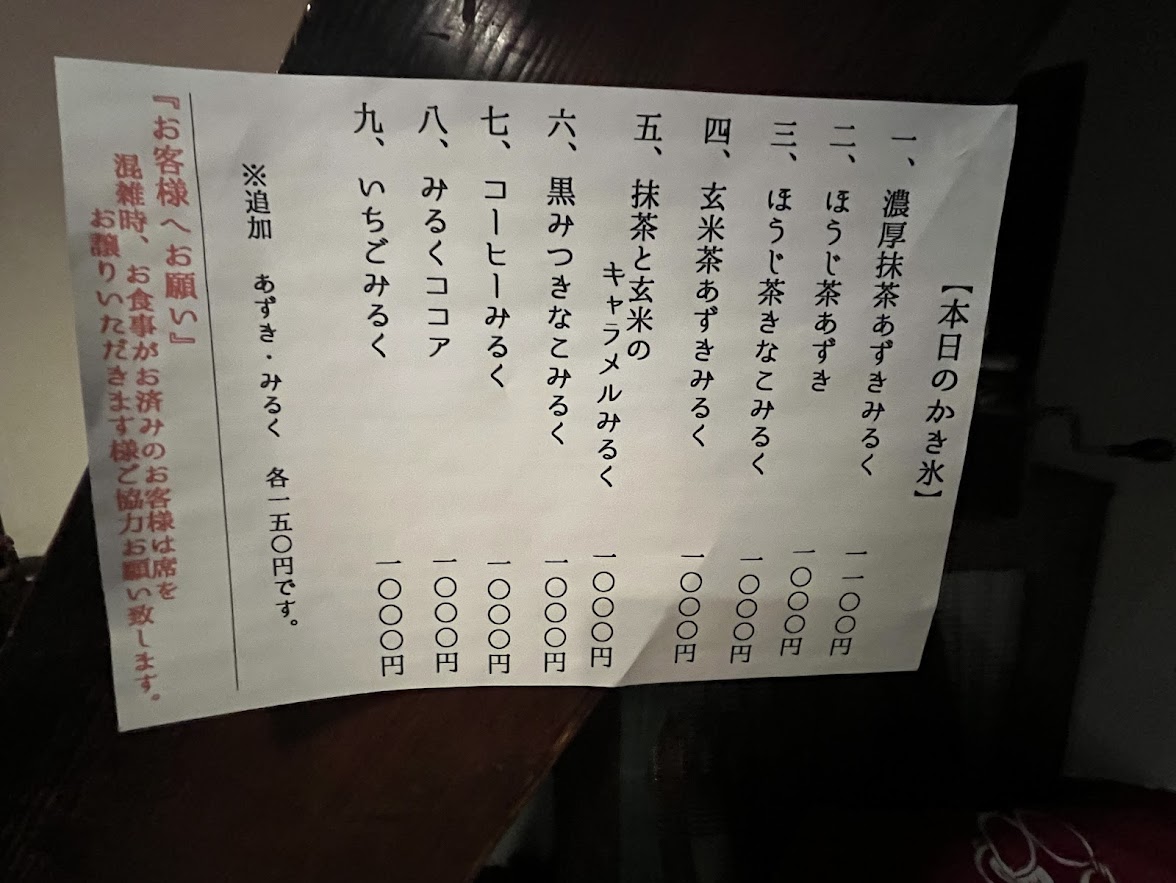 【本日のかき氷】
一、濃厚抹茶あずきみるく 一一〇〇円
二、ほうじ茶あずき 一〇〇〇円
三、ほうじ茶きなこみるく 一〇〇〇円
四、玄米茶あずきみるく 一〇〇〇円
五、抹茶と玄米の
キャラメルみるく 一〇〇〇円
六、黒みつきなこみるく 一〇〇〇円
七、コーヒーみるく 一〇〇〇円
八、みるくココア 一〇〇〇円
九、いちごみるく 一〇〇〇円
※追加 あずき・みるく 各一五〇円です。
『お客様へお願い』
混雑時、お食事がお済みのお客様は席を
お譲りいただきます様ご協力お願い致します。